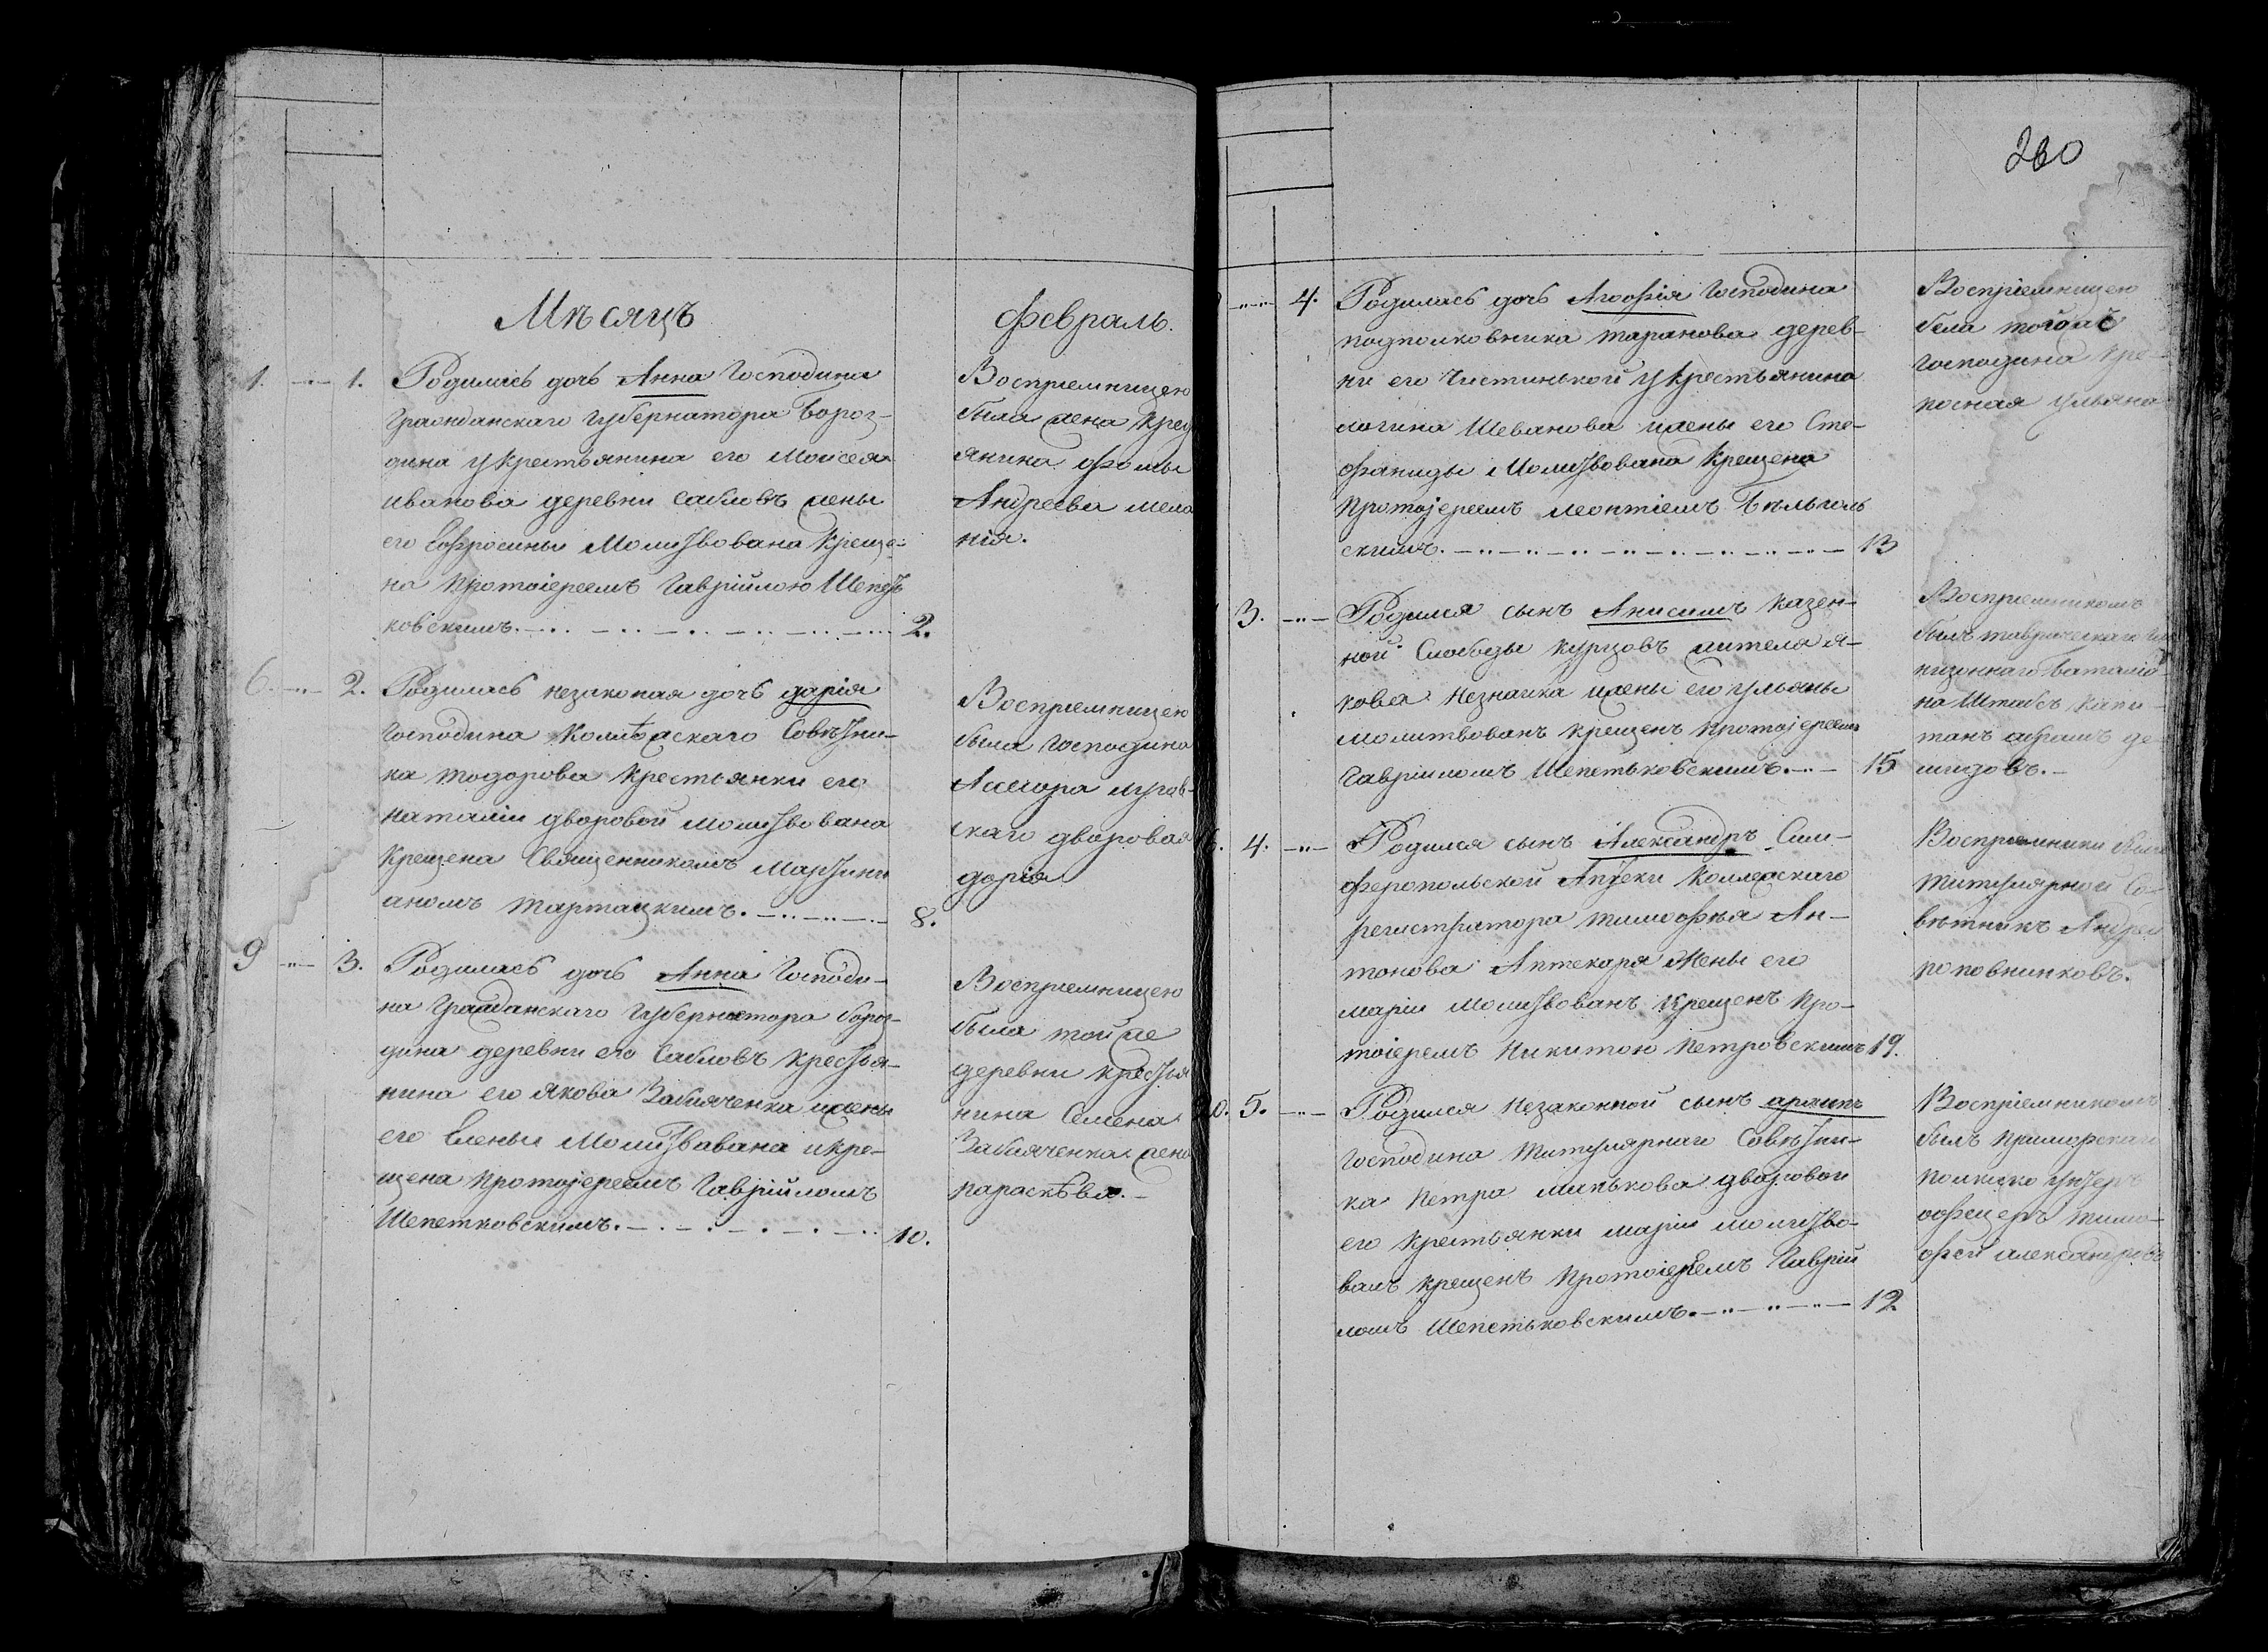 Мѣсяцъ
февраль.
1. 1. Родилась дочь Анна Господина
Гражданскаго Губернатора Бороз-
дина у крестьянина его Моисея
иванова деревни Сабловъ жены
его Ефросиньи Молитвована Креще-
на Протоіереемъ Гавріиломъ Шепеть
ковскимъ. 2.
Воспріемницею
была жена крес
янина фомы
Андреева мела
нія.
6. 2. Родилась незаконая дочь дарія
Господина Колѣжскаго Совѣтни-
ка тодорова Крестьянки его
Наталіи дворовой молитвована
Крещена Священникомъ Мартини
аномъ 8.
Воспріемницею
была Господина
Асесора
скаго дворовая
дарія
9 3. Родилась дочь Анна Господи-
на Гражданскаго Губернатора бороз-
дина деревни его Сабловъ крестья-
нина его Якова Забіяченка ижены
его Елены Молитвавана икре-
щена Протоіереемъ Гавріиломъ
Шепетковскимъ. 10.
Воспріемницею
была той же
деревни крестья
нина Семена
Забіяченка жена
параскѣва.
260
4. Родилась дочь Агафія Господина
подполковника таранова дерев-
ни его Чистинькой у крестьянина
логина Шеванова ижены его Сте-
фаниды Молитвована Крещена
Протоіереемъ леонтіемъ
скимъ. 13
Воспріемницею
бела тогоже
Господина Кре-
посная ульяна
3. Родился сынъ Анисимъ казен-
ной Слободы курцовъ жителя я-
кова Незнайка ижены его ульяны
молитвованъ крещенъ протоіереемъ
Гавріиломъ Шепетьковскимъ. 15
Воспріемникомъ
былъ таврическаго гар
низоннаго баталіо-
на Штабсъ капи-
танъ абрамъ де-
мидовъ.
4. Родился сынъ Александръ Сим-
феропольской Аптеки Колежскаго
регистратора тимофѣя Ан-
тонова Аптекаря жены его
маріи молитвованъ крещенъ Про-
тоіеремъ Никитою Петровскимъ 19.
Воспріемники были
титулярной Со-
вѣтникъ Андрей
половниковъ.
5. Родился незаконной сынъ архипъ
Господина титулярнаго Совѣтни-
ка Петра минькова дворовой
его крестьянки маріи молитво-
ванъ крещенъ Протоіереемъ Гаврiи
ломъ Шепетьковскимъ. 12
Воспріемникомъ
былъ приморскаго
полкико унтеръ
офицеръ тимо-
фей александровъ